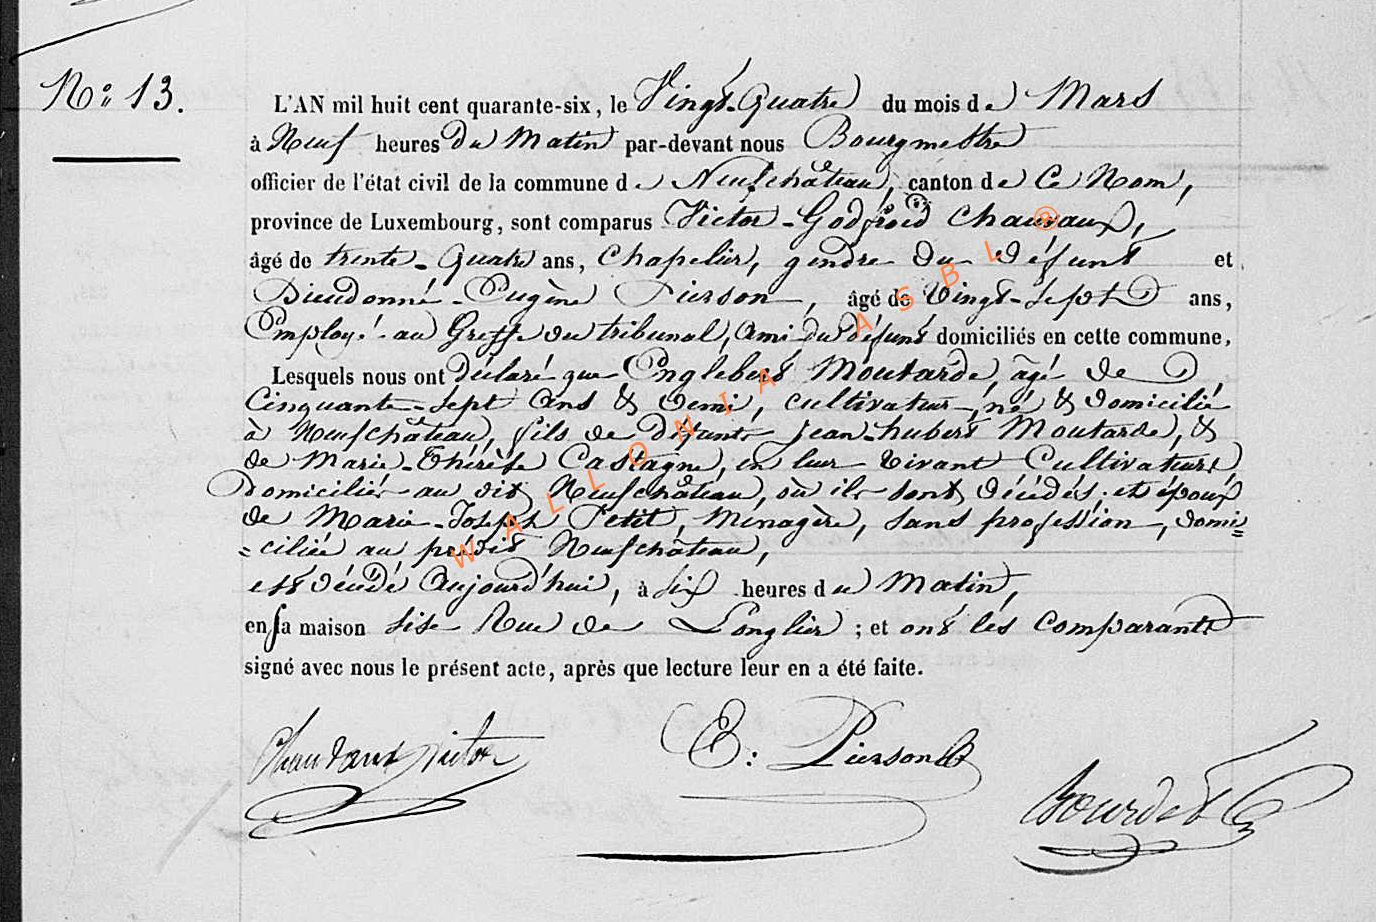 N° 13.
L'AN mil huit cent quarante-six, le Vingt-Quatre du mois de Mars
à Neuf heures du Matin par-devant nous Bourgmestre
officier de l'état civil de la commune de Neufchâteau, canton de Ce Nom,
province de Luxembourg, sont comparus Victor-Godfroid Chauvaux,
âgé de trente-Quatre ans, Chapelier, gendre du défunt et
Dieudonné-Eugène Pierson, âgé de Vingt-Sept ans,
Employé au Greffe du tribunal, Ami du défunt domiciliés en cette commune,
Lesquels nous ont déclaré que Englebert Moutarde, âgé de
Cinquante-Sept Ans & Demi, cultivateur, né & domicilié
à Neufchâteau, fils de défunts Jean-hubert Moutarde, &
de Marie-Thérèse Castagne, en leur Vivant Cultivateurs,
Domiciliés au dit Neufchâteau, où ils sont décédés; et époux
de Marie-Joseph Petit, Ménagère, sans profession, domi=
=ciliée au prédit Neufchâteau,
est décédé Aujourd'hui, à Six heures du Matin,
en sa maison sise Rue de Longlier; et ont les Comparants
signé avec nous le présent acte, après que lecture leur en a été faite.
Chauvaux Victor E: Pierson Bourdet
WALLONIA ASBL ®